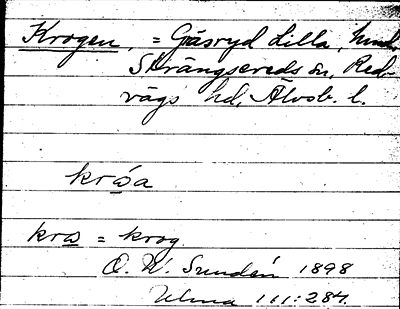 Krogen, = Gåsryd Lilla, hmd,
Strängsereds sn, Red-
vägs hd, Älvsb. l.
kråa
kra = krog.
O. W. Sundén 1898
Ulma 111:284.